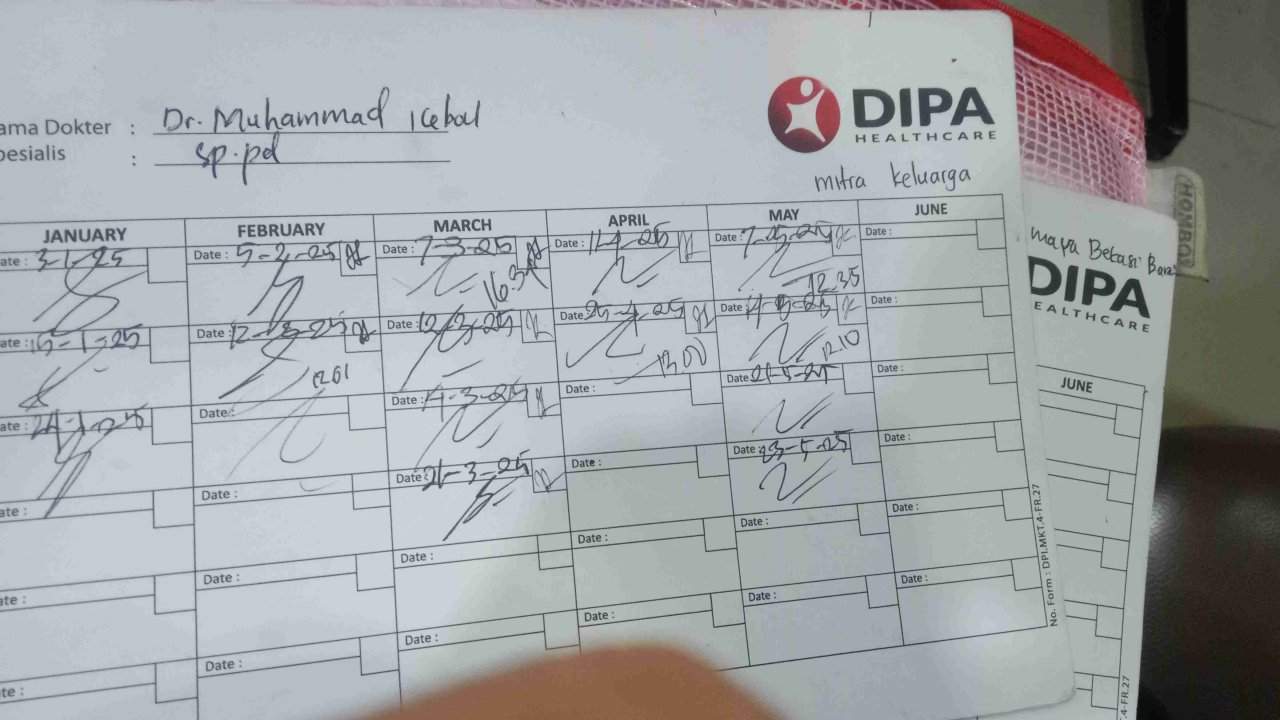 ama Dokter : Dr. Muhammad Iqbal
pesialis : Sp.pd
DIPA
HEALTHCARE
mitra keluarga
JANUARY FEBRUARY MARCH APRIL MAY JUNE
ate: 3-1-25 Date : 5-2-25 Date : 7-3-25 Date : 11-4-25 Date : 7-05-25 Date :
16.3 12.35
ate : 15-1-25 Date : Date : 12-3-25 Date : 25-4-25 Date : 14-5-25 Date :
1201 13.00 12.10
ate : 24-1-25 Date : Date : 14-3-25 Date : Date : 21-5-25 Date :
ate : Date : Date : 21-3-25 Date : Date : 23-5-25 Date :
ate : Date : Date : Date : Date : Date :
ate : Date : Date : Date : Date : Date :
No. Form : DPI.MKT.4-FR.27
maya Bekasi Bara
DIPA
EALTHCARE
JUNE
.4-FR.27
HONBO